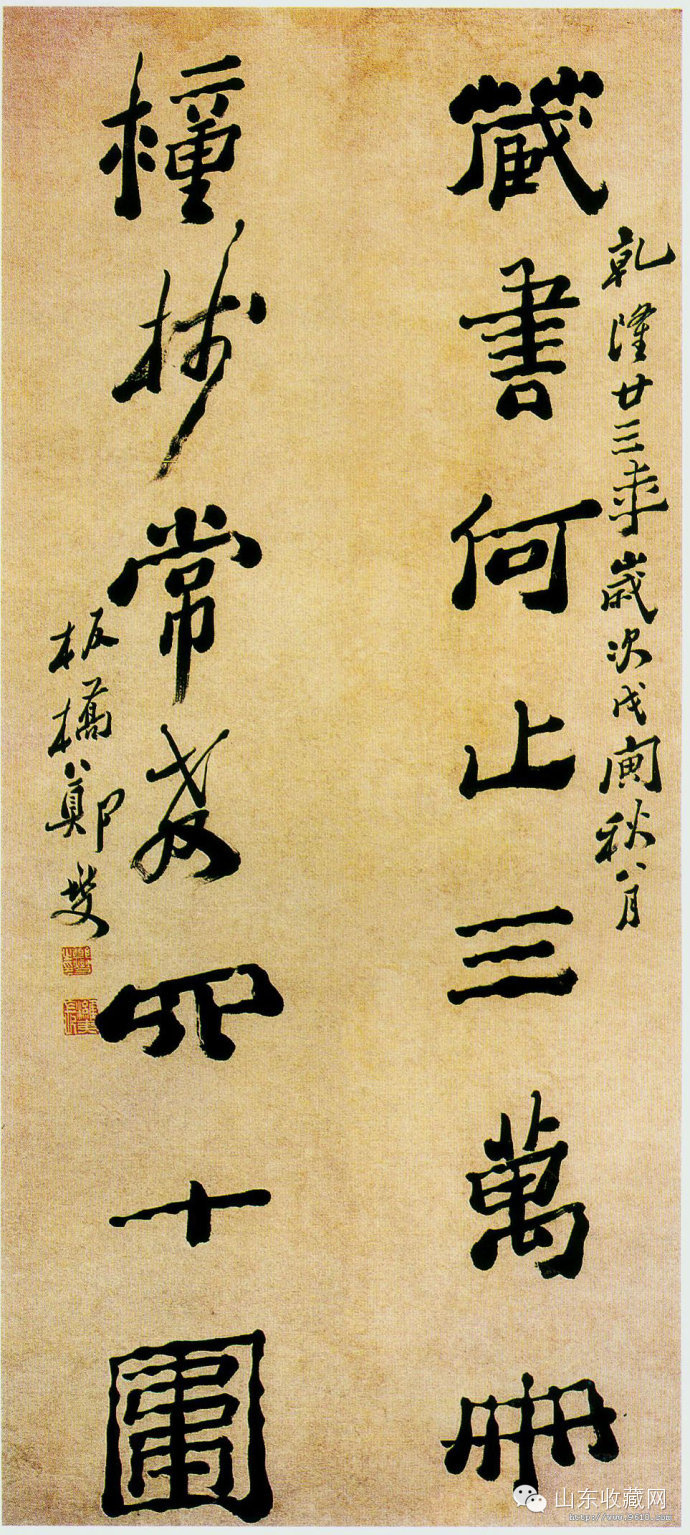 乾隆廿三年歲次戊寅秋八月
藏書何止三萬冊
種樹常教四十圍
板橋鄭燮
山东收藏网
https://www.9610.com